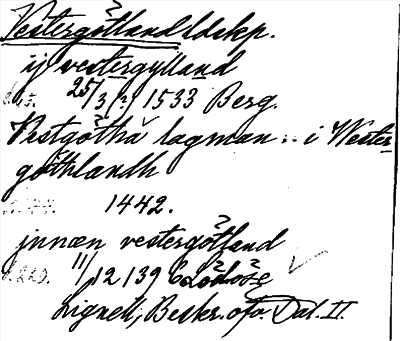 Vestergötland ldskp.
ij vestergylland
25/3 (?) 1533 Berg.
Vestgötha lagman .. i Wester-
göthlandh
1442.
jnnæn vestergötland
11/12 139 Lödöse
Lignell, Beskr. öfv. Dal. II.